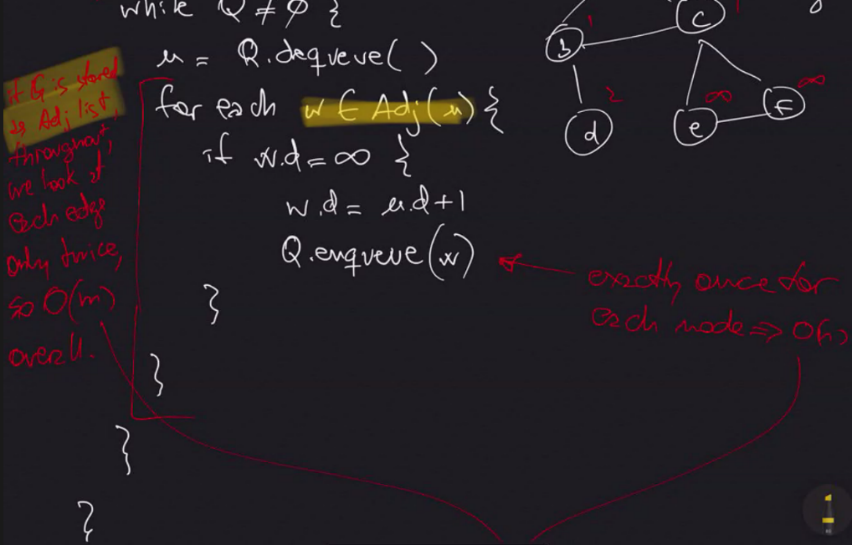 while Q ≠ ∅ {
u = Q.dequeue()
for each w ∈ Adj(u) {
if w.d = ∞ {
w.d = u.d+1
Q.enqueue(w)
}
}
}
}
if G is stored
as Adj list,
throughout,
we look at
each edge
only twice,
so O(m)
overall.
exactly once for
each node ⇒ O(n)
1
c
1
b
d
2
e
∞
F
∞